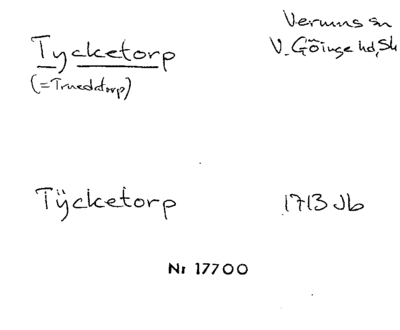 Tycketorp
(=Truedstorp)
Verums sn
V. Göinge hd, Sk
Tÿcketorp
1713 Jb
Nr 17700